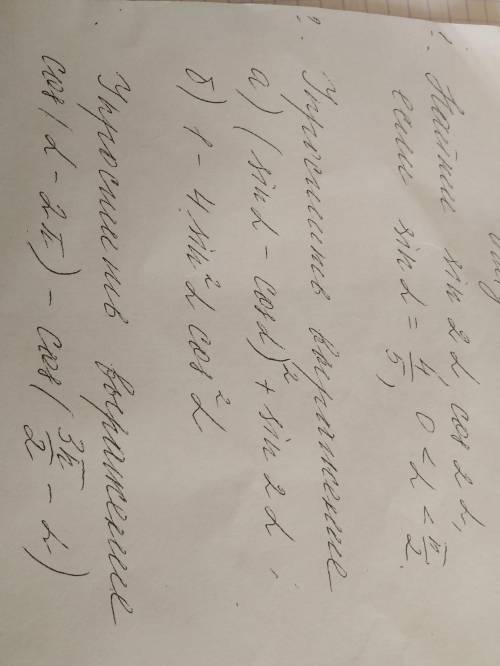 1. Найти sin 2α, cos 2α,
если sin α = 4/5, 0 < α < π/2.
2. Упростить выражение
а) (sin α - cos α)² + sin 2α;
б) 1 - 4 sin² α cos² α
Упростить выражение
cos(α - 2π) - cos(3π/2 - α)